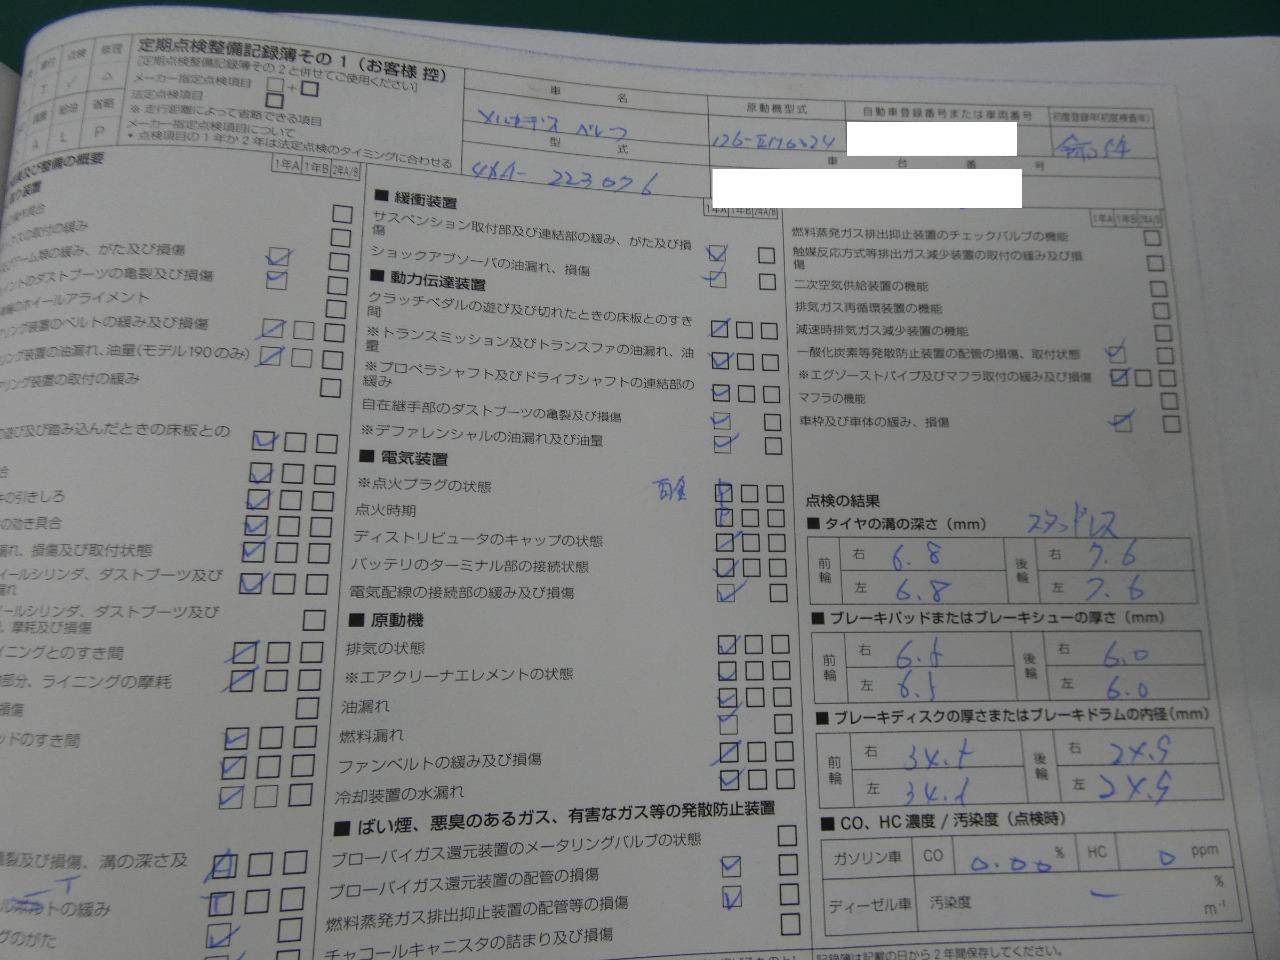 定期点検整備記録簿その1(お客様 控)
[定期点検整備記録簿その2と併せてご使用ください]
メーカー指定点検項目 □+□
法定点検項目 □
※ 走行距離によって省略できる項目
メーカー指定点検項目について
* 点検項目の1年か2年は法定点検のタイミングに合わせる
点検 修理
T ✓ △
給油 省略
A L P
車 名
メルセデス ベンツ
原動機型式
自動車登録番号または車両番号
初度登録年(初度検査年)
令和5年
型 式
4AA- 223076
車 台 番 号
及び整備の概要
1年A 1年B 2年A/B
取付の緩み
アーム類の緩み、がた及び損傷
イントのダストブーツの亀裂及び損傷
ホイールアライメント
リング装置のベルトの緩み及び損傷
リング装置の油漏れ、油量(モデル190のみ)
リング装置の取付の緩み
遊び及び踏み込んだときの床板との
の引きしろ
の効き具合
漏れ、損傷及び取付状態
イールシリンダ、ダストブーツ及び
漏れ
イールシリンダ、ダストブーツ及び
、摩耗及び損傷
イニングとのすき間
部分、ライニングの摩耗
損傷
ッドのすき間
亀裂及び損傷、溝の深さ及
トの緩み
グのがた
■ 緩衝装置
1年A 1年B 2年A/B
サスペンション取付部及び連結部の緩み、がた及び損
傷
ショックアブソーバの油漏れ、損傷
■ 動力伝達装置
クラッチペダルの遊び及び切れたときの床板とのすき
間
※トランスミッション及びトランスファの油漏れ、油
量
※プロペラシャフト及びドライブシャフトの連結部の
緩み
自在継手部のダストブーツの亀裂及び損傷
※デファレンシャルの油漏れ及び油量
■ 電気装置
※点火プラグの状態 P
点火時期 P
ディストリビュータのキャップの状態
バッテリのターミナル部の接続状態
電気配線の接続部の緩み及び損傷
■ 原動機
排気の状態
※エアクリーナエレメントの状態
油漏れ
燃料漏れ
ファンベルトの緩み及び損傷
冷却装置の水漏れ
■ ばい煙、悪臭のあるガス、有害なガス等の発散防止装置
ブローバイガス還元装置のメータリングバルブの状態
ブローバイガス還元装置の配管の損傷
燃料蒸発ガス排出抑止装置の配管等の損傷
チャコールキャニスタの詰まり及び損傷
1年A 1年B 2年A/B
燃料蒸発ガス排出抑止装置のチェックバルブの機能
触媒反応方式等排出ガス減少装置の取付の緩み及び損
傷
二次空気供給装置の機能
排気ガス再循環装置の機能
減速時排気ガス減少装置の機能
一酸化炭素等発散防止装置の配管の損傷、取付状態
※エグゾーストパイプ及びマフラ取付の緩み及び損傷
マフラの機能
車枠及び車体の緩み、損傷
点検の結果
■ タイヤの溝の深さ(mm) スタッドレス
前輪 右 6.8 後輪 右 7.6
左 6.8 左 7.6
■ ブレーキパッドまたはブレーキシューの厚さ(mm)
前輪 右 6.5 後輪 右 6.0
左 6.5 左 6.0
■ ブレーキディスクの厚さまたはブレーキドラムの内径(mm)
前輪 右 後輪 右 24.9
左 左 24.9
■ CO、HC濃度/汚染度(点検時)
ガソリン車 CO 0.00 % HC 0 ppm
ディーゼル車 汚染度 ー %
m⁻¹
記録簿は記載の日から2年間保存してください。